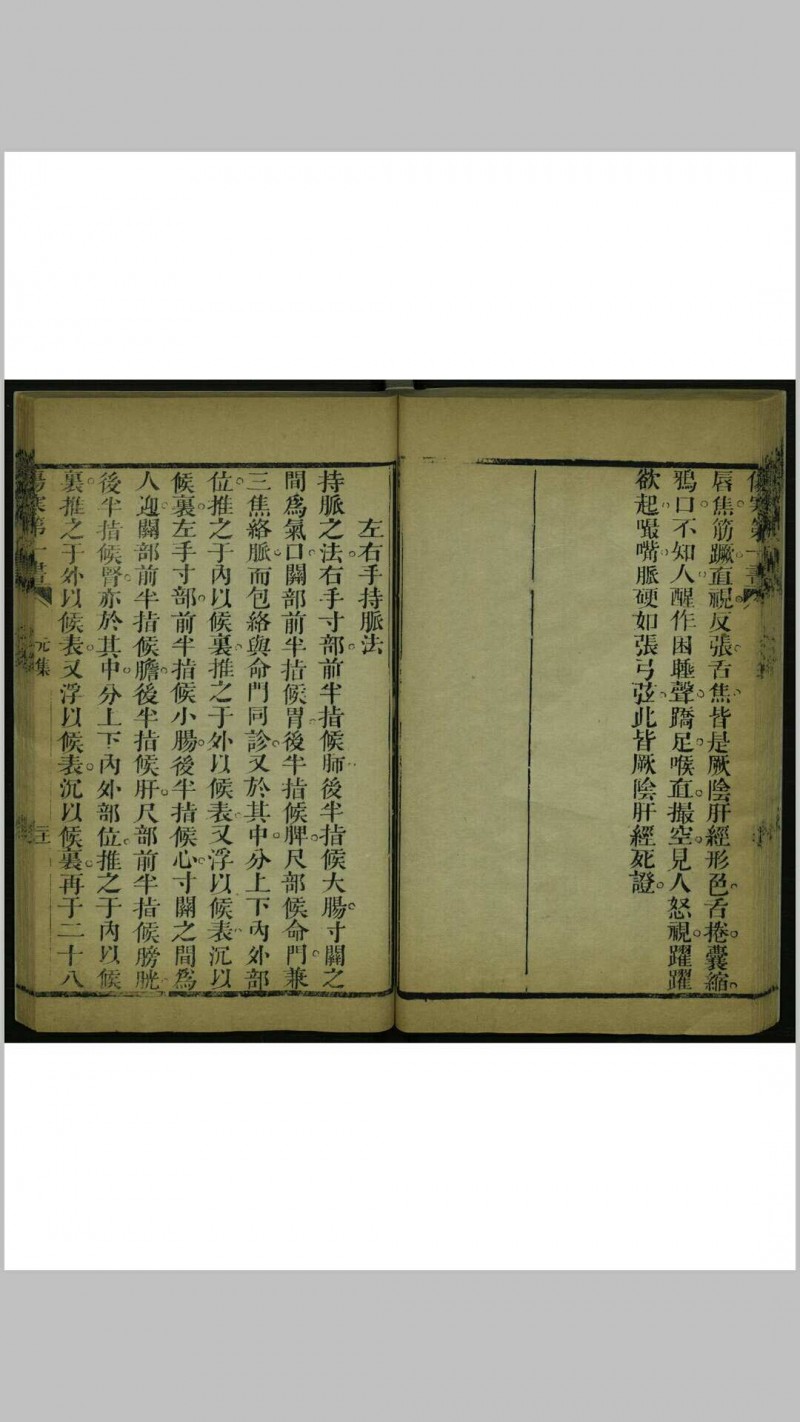 唇焦筋蹶直視反張舌焦皆是厥陰肝經形色舌捲囊縮
鴉口不知人醒作困睡聲蹻足喉直撮空見人怒視躍躍
欲起嘬嘴脈硬如張弓弦此皆厥陰肝經死證
左右手持脈法
持脈之法右手寸部前半指候肺後半指候大腸寸關之
間爲氣口關部前半指候胃後半指候脾尺部候命門兼
三焦絡脈而包絡與命門同診又於其中分上下內外部
位推之于內以候裏推之于外以候表又浮以候表沉以
候裏左手寸部前半指候小腸後半指候心寸關之間爲
人迎關部前半指候膽後半指候肝尺部前半指候膀胱
後半指候腎亦於其中分上下內外部位推之于內以候
裏推之于外以候表又浮以候表沉以候裏再于二十八
傷寒第一書
元集